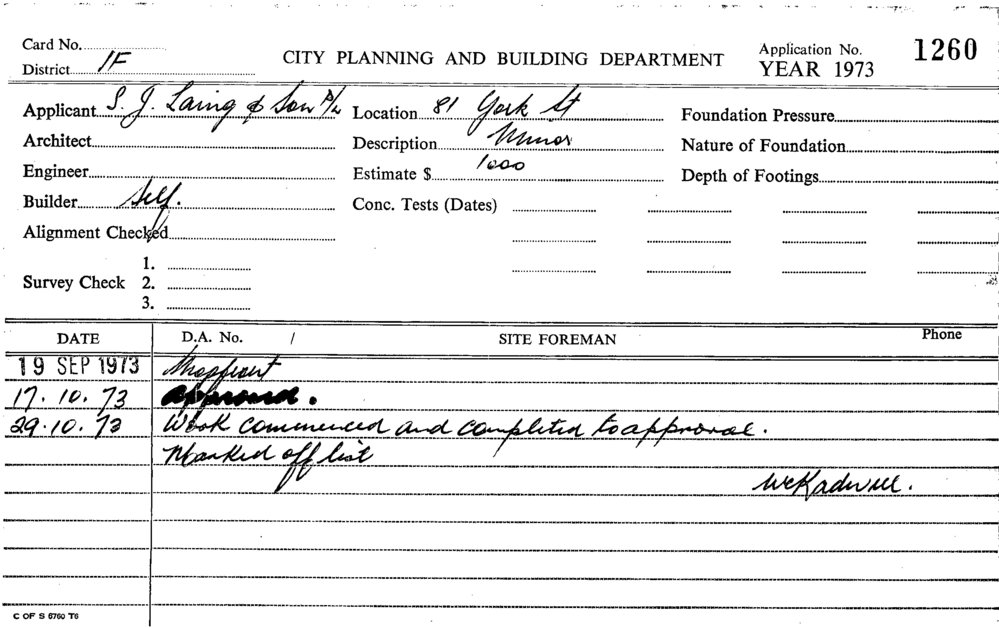 Card No.
CITY PLANNING AND BUILDING DEPARTMENT
Application No. 1260
District 1F
YEAR 1973
Applicant S. J. Laing & Son P/L Location 81 York St Foundation Pressure
Architect Description Minor Nature of Foundation
Engineer Estimate $ 1000 Depth of Footings
Builder Self. Conc. Tests (Dates)
Alignment Checked
1.
Survey Check 2.
3.
DATE D.A. No. / SITE FOREMAN Phone
19 SEP 1973
17. 10. 73 Approved.
29. 10. 73 Work commenced and completed to approval.
Marked off list
C OF S 6760 T6